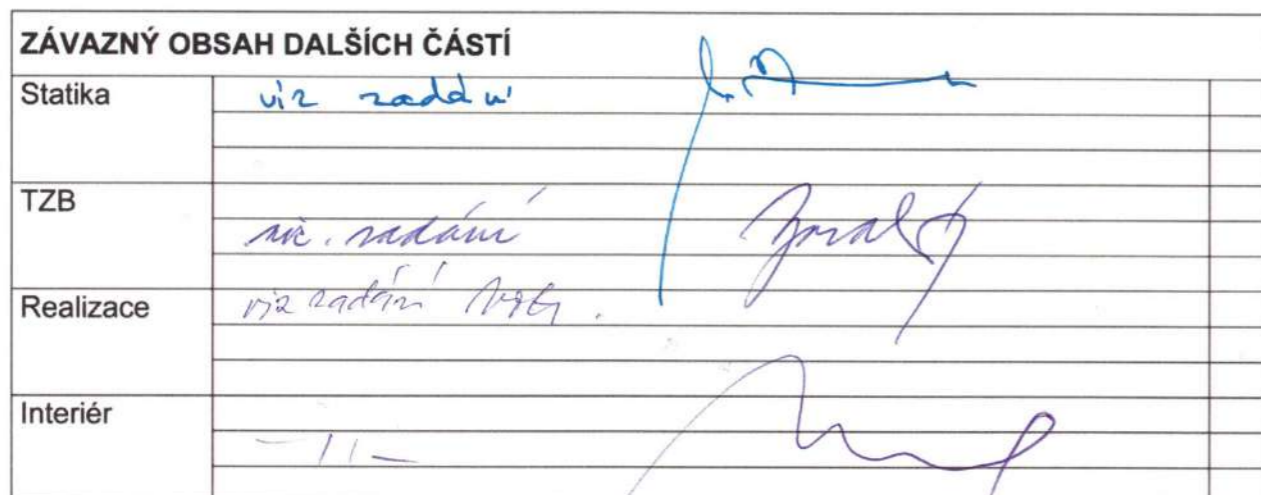 ZÁVAZNÝ OBSAH DALŠÍCH ČÁSTÍ
Statika viz zadání
TZB
viz. zadání
Realizace viz zadání
Interiér
-11-